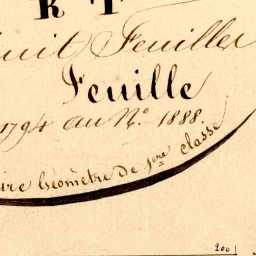 R T
huit Feuilles
Feuille
1794 au N.º 1888.
ire Géomètre de 1ère classe
200